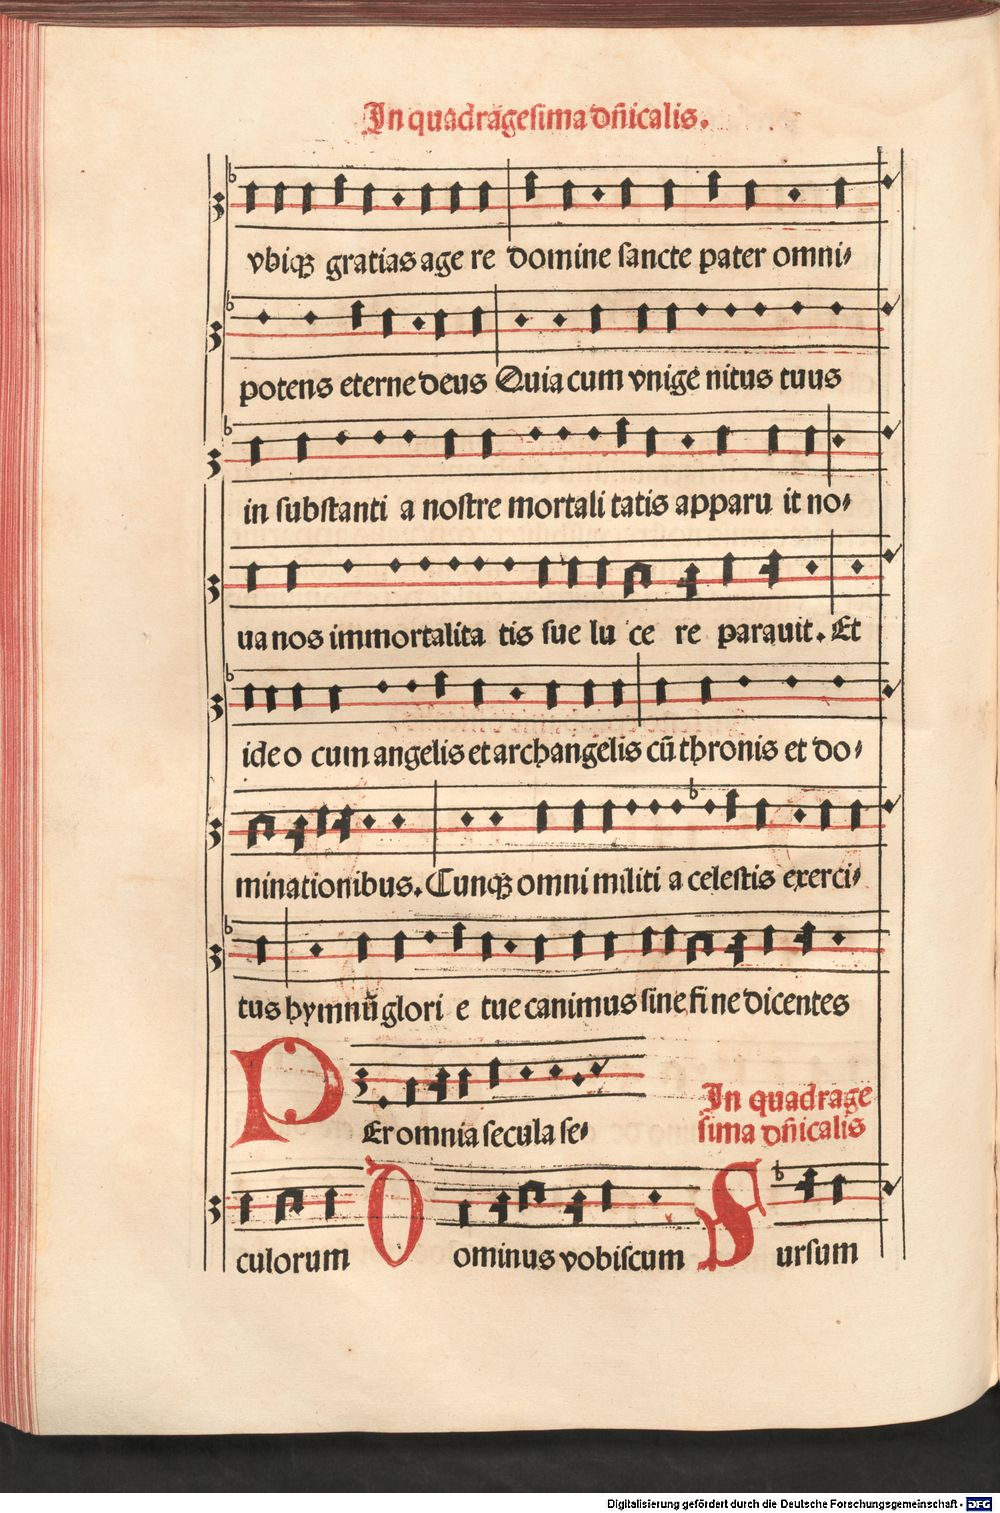 In quadragesima dñicalis.
vbiqꝫ gratias age re domine sancte pater omni⸗
potens eterne deus Quia cum vnige nitus tuus
in substanti a nostre mortali tatis apparu it no⸗
ua nos immortalita tis sue lu ce re parauit. Et
ideo cum angelis et archangelis cū thronis et do⸗
minationibus. Cunqꝫ omni militi a celestis exerci⸗
tus hymnū glori e tue canimus sine fi ne dicentes
PEr omnia secula se⸗
In quadrage
sima dñicalis
culorum Dominus vobiscum Sursum
Digitalisierung gefördert durch die Deutsche Forschungsgemeinschaft - DFG